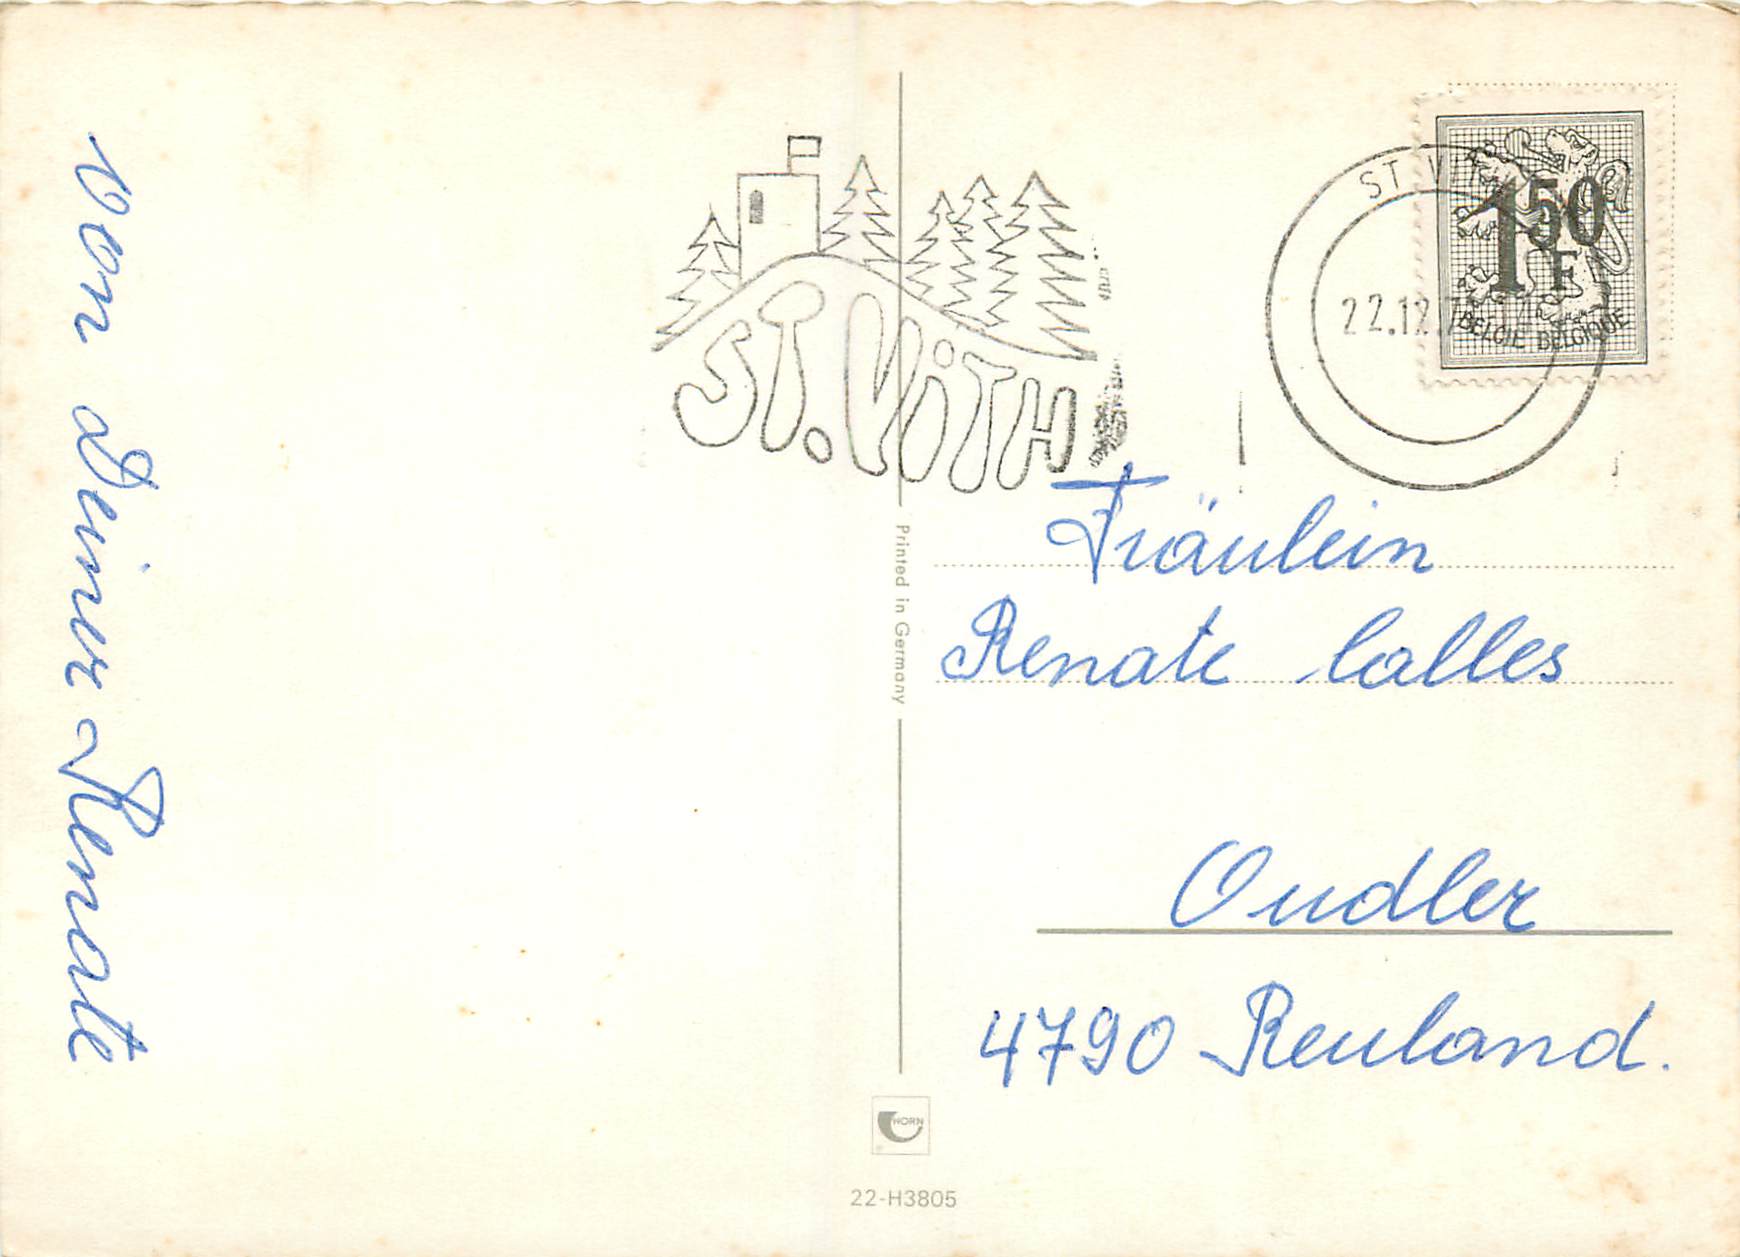 von Deiner Renate
ST. ViTH
ST V
22.12.7
1 50
F
BELGIE BELGIQUE
Printed in Germany
Fräulein
Renate Calles
Oudler
4790 Reuland.
HORN
22-H3805